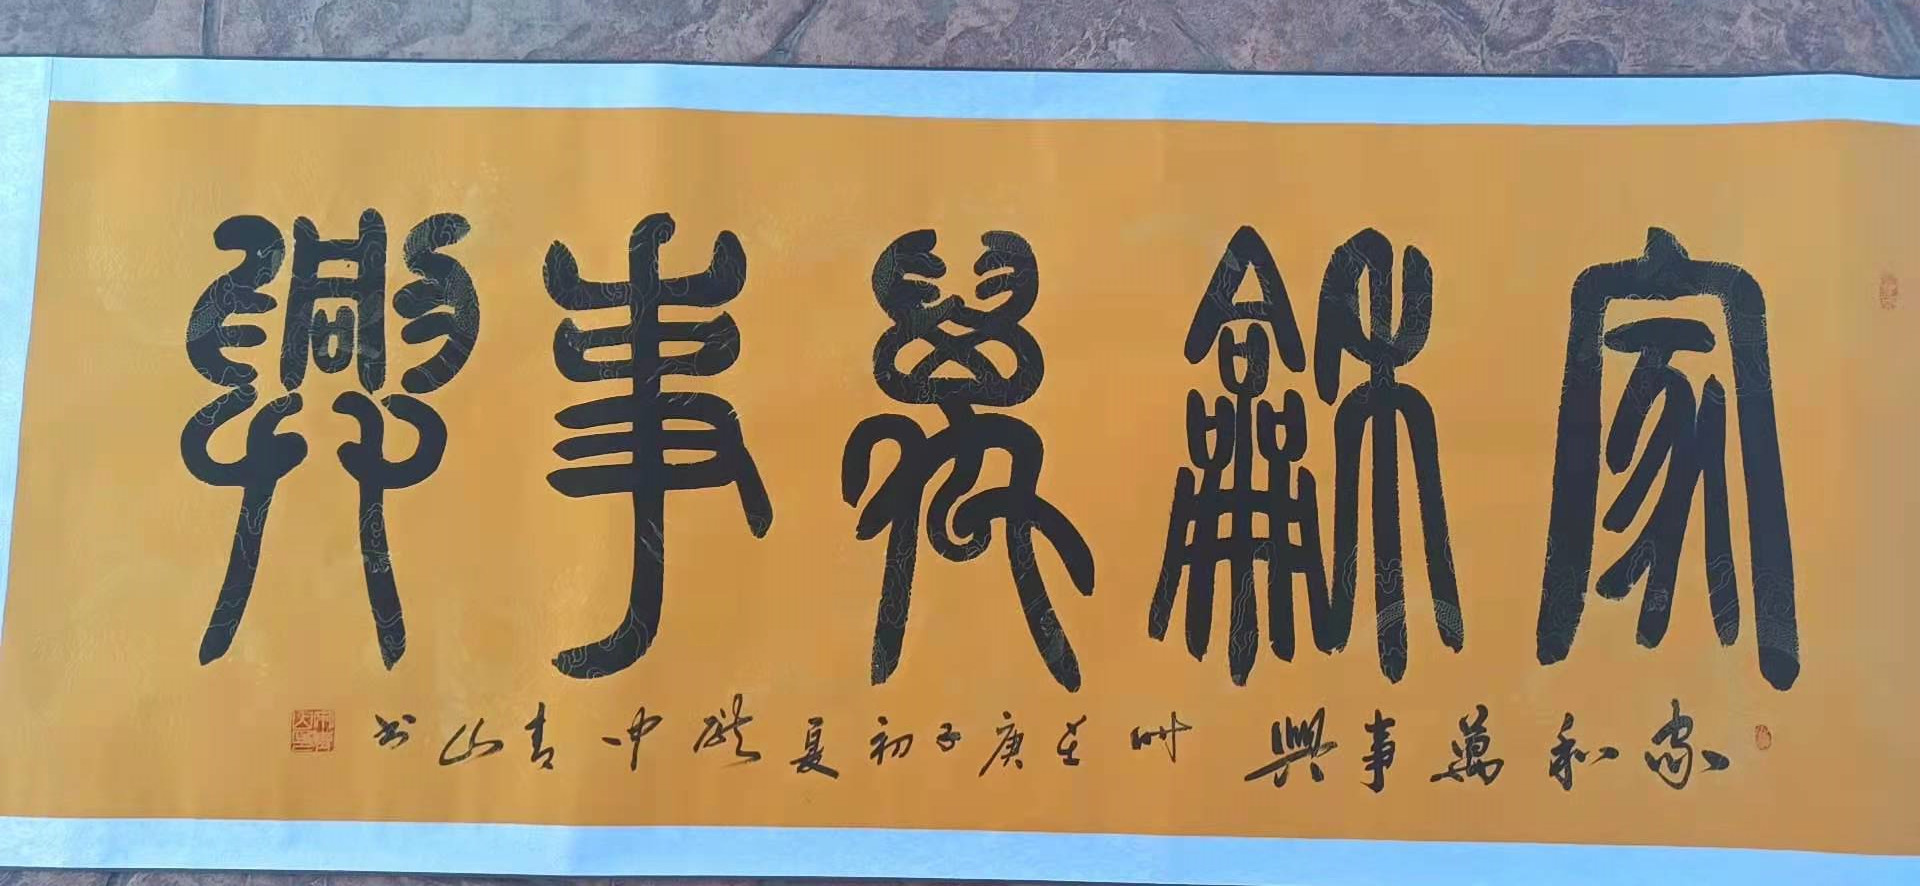 家龢萬事興
家和萬事興 時在庚子初夏 中青山書